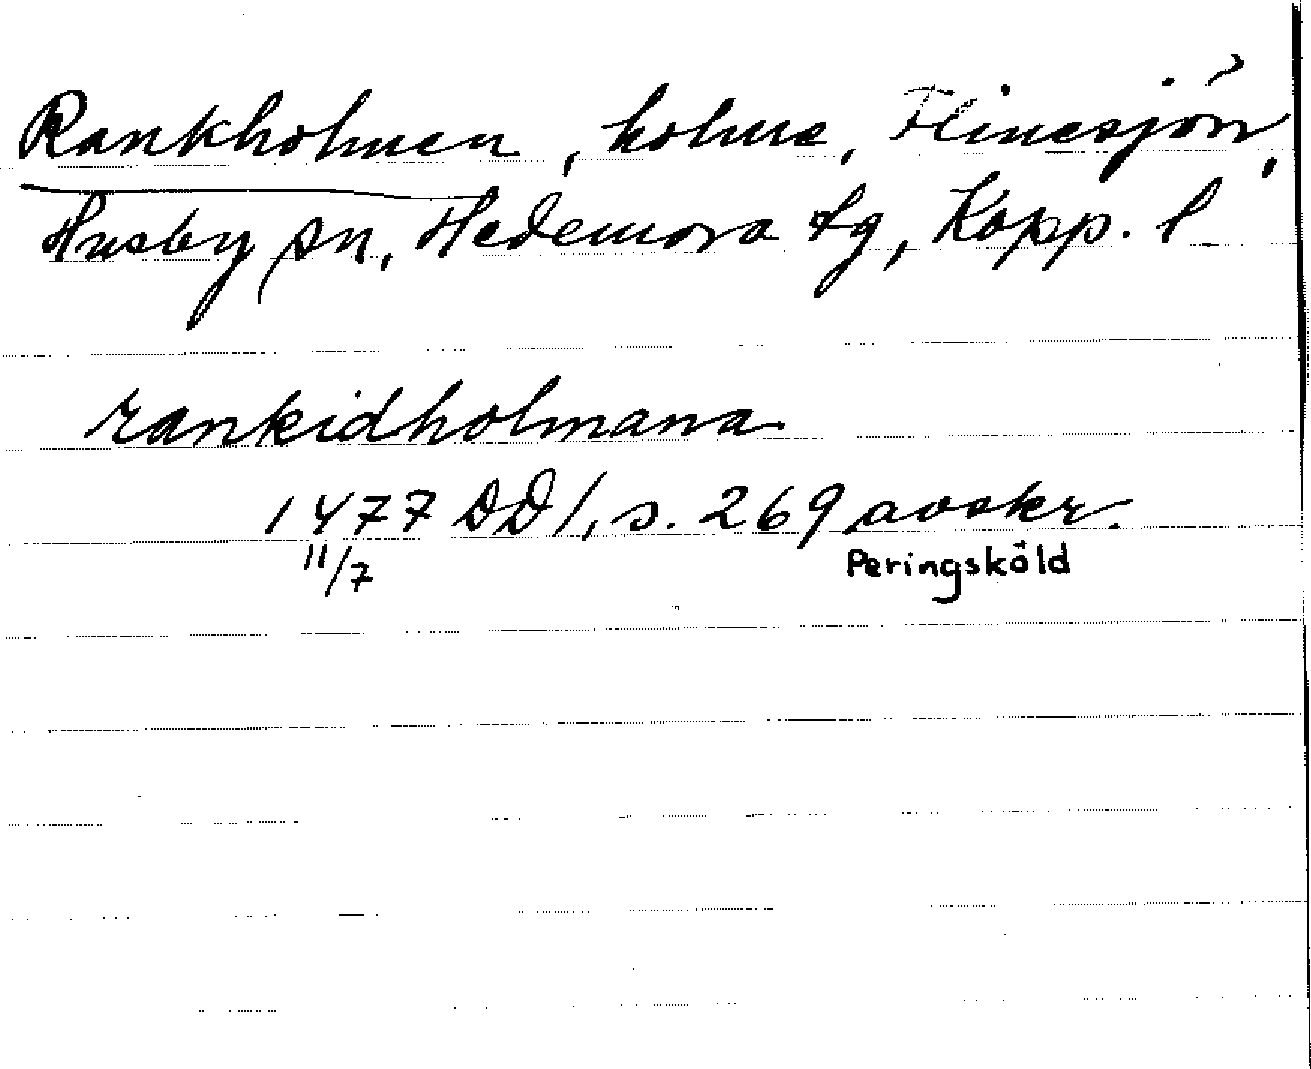 Rankholmen, holme, Flinesjön,
Husby sn, Hedemora tg, Kopp. l
rankidholmana
1477 DD 1, s. 269 avskr.
11/7 Peringsköld